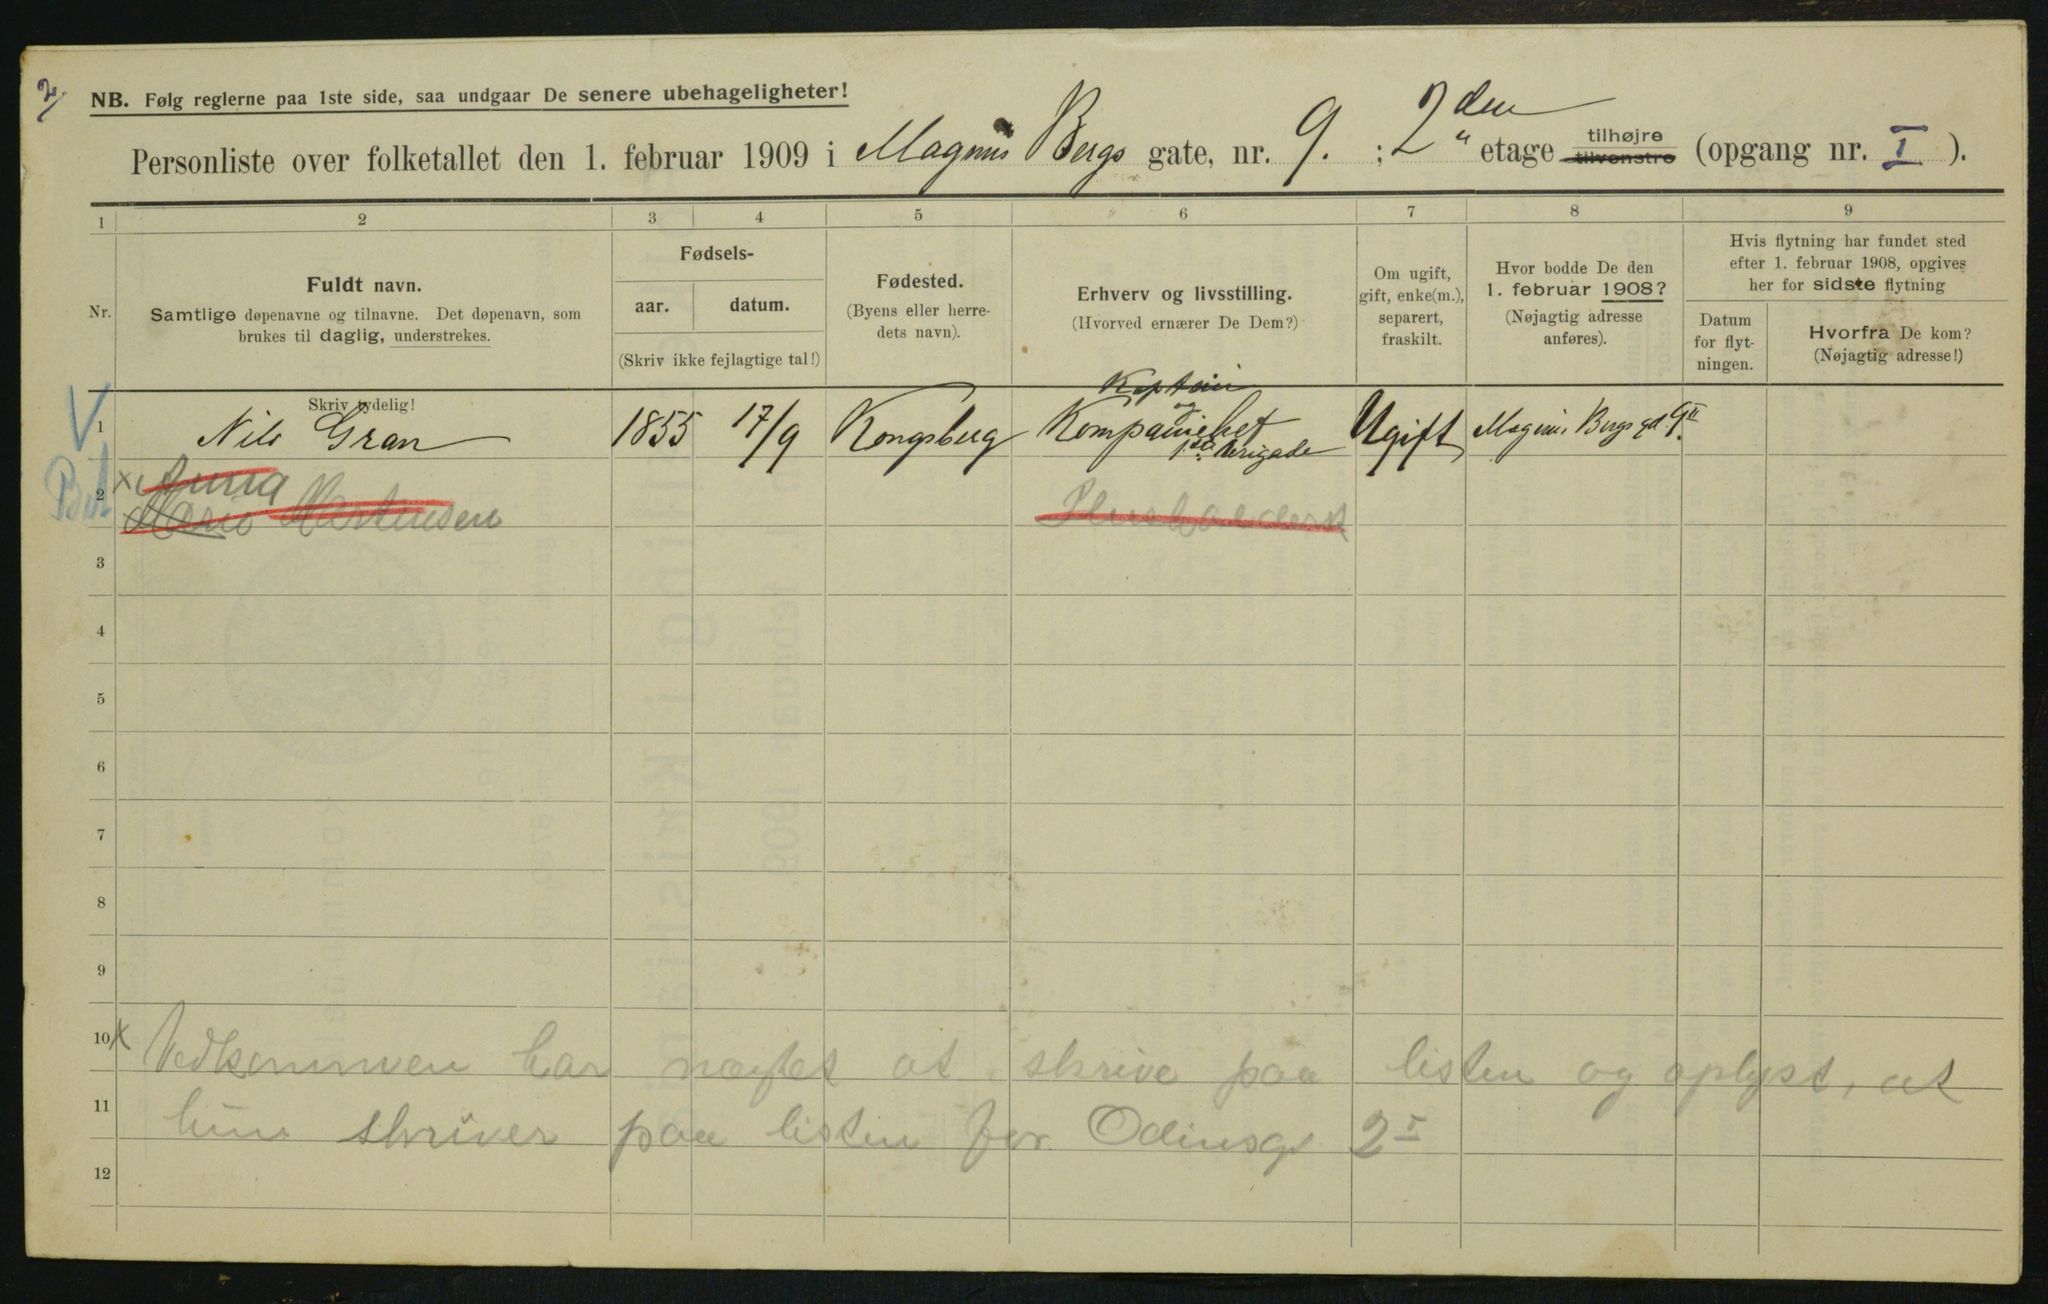 2/
NB. Følg reglerne paa 1ste side, saa undgaar De senere ubehageligheter!
Personliste over folketallet den 1. februar 1909 i Magnus Bergs gate, nr. 9. ; 2den etage tilhøjre tilvenstre (opgang nr. I ).
1 2 3 4 5 6 7 8 9
Nr.
Fuldt navn.
Samtlige døpenavne og tilnavne. Det døpenavn, som
brukes til daglig, understrekes.
Fødsels-
aar. datum.
(Skriv ikke fejlagtige tal!)
Fødested.
(Byens eller herre-
dets navn).
Erhverv og livsstilling.
(Hvorved ernærer De Dem?)
Om ugift,
gift, enke(m.),
separert,
fraskilt.
Hvor bodde De den
1. februar 1908?
(Nøjagtig adresse
anføres).
Hvis flytning har fundet sted
efter 1. februar 1908, opgives
her for sidste flytning
Datum
for flyt-
ningen.
Hvorfra De kom?
(Nøjagtig adresse!)
Skriv tydelig!
Kaptein
og
V 1 Nils Gran 1855 17/9 Kongsberg Kompanichef Ugift Magnus Bergs gd 9II
1ste brigade
x Anna
2 Marie Martensen
3
4
5
6
7
8
9
10 x Vedkommen har nægtet at skrive paa listen og oplyst, at
11 hun skriver paa listen for Odinsgt 2I
12